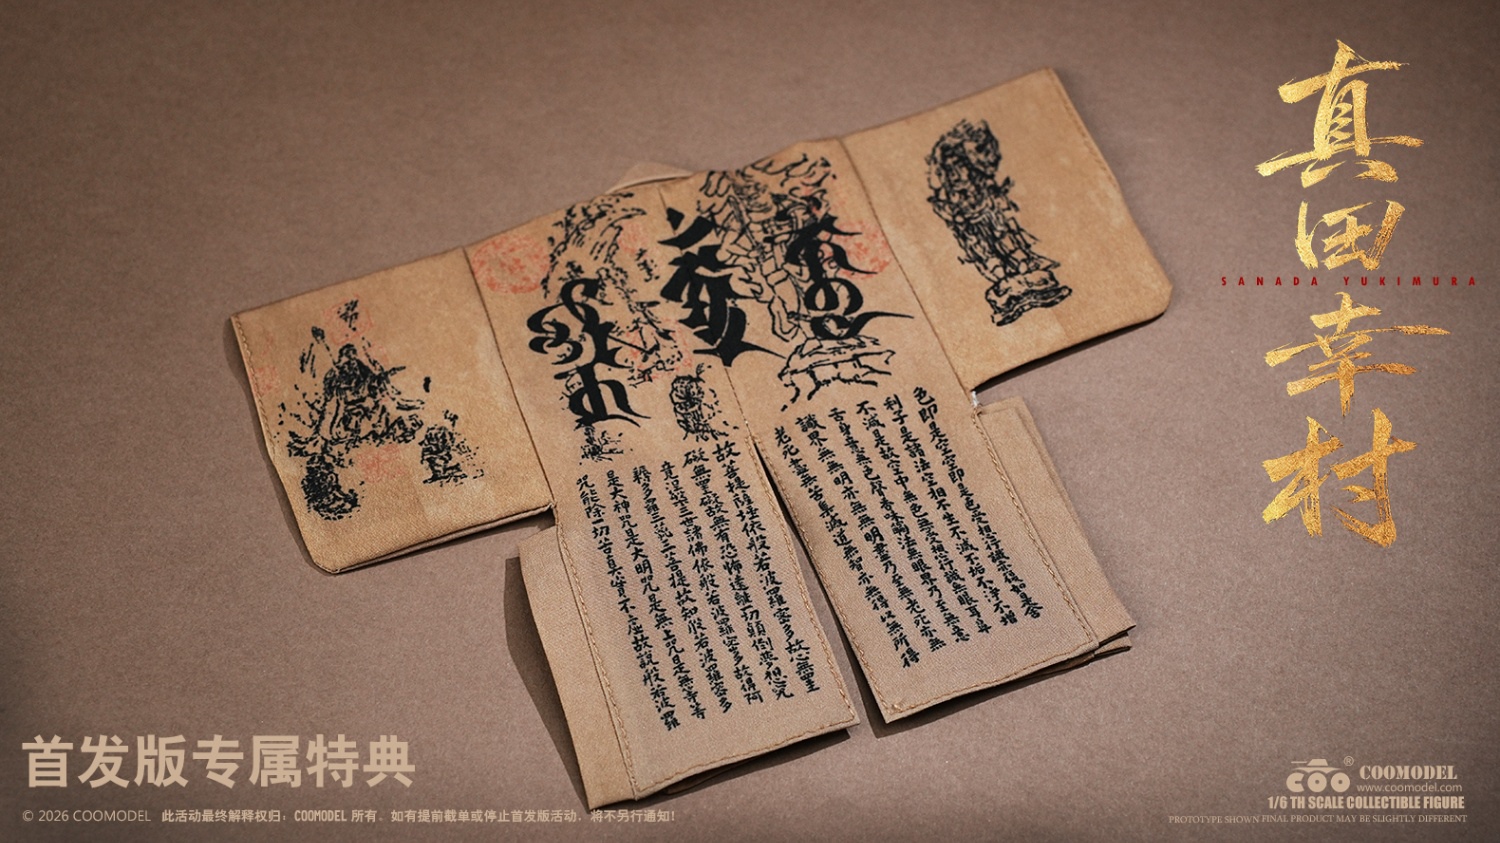 真田幸村
SANADA YUKIMURA
色即是空空即是色受想行識亦復如是舍
利子是諸法空相不生不滅不垢不淨不增
不減是故空中無色無受想行識無眼耳鼻
舌身意無色聲香味觸法無眼界乃至無意
識界無無明亦無無明盡乃至無老死亦無
老死盡無苦集滅道無智亦無得以無所得
故菩提薩埵依般若波羅密多故心無罣
礙無罣礙故無有恐怖遠離一切顛倒夢想究
竟涅槃三世諸佛依般若波羅密多故得阿
耨多羅三藐三菩提故知般若波羅密多
是大神咒是大明咒是無上咒是無等等
咒能除一切苦真實不虛故說般若波羅
首发版专属特典
© 2026 COOMODEL 此活动最终解释权归：COOMODEL 所有。如有提前截单或停止首发版活动，将不另行通知！
® COOMODEL
www.coomodel.com
1/6 TH SCALE COLLECTIBLE FIGURE
PROTOTYPE SHOWN FINAL PRODUCT MAY BE SLIGHTLY DIFFERENT